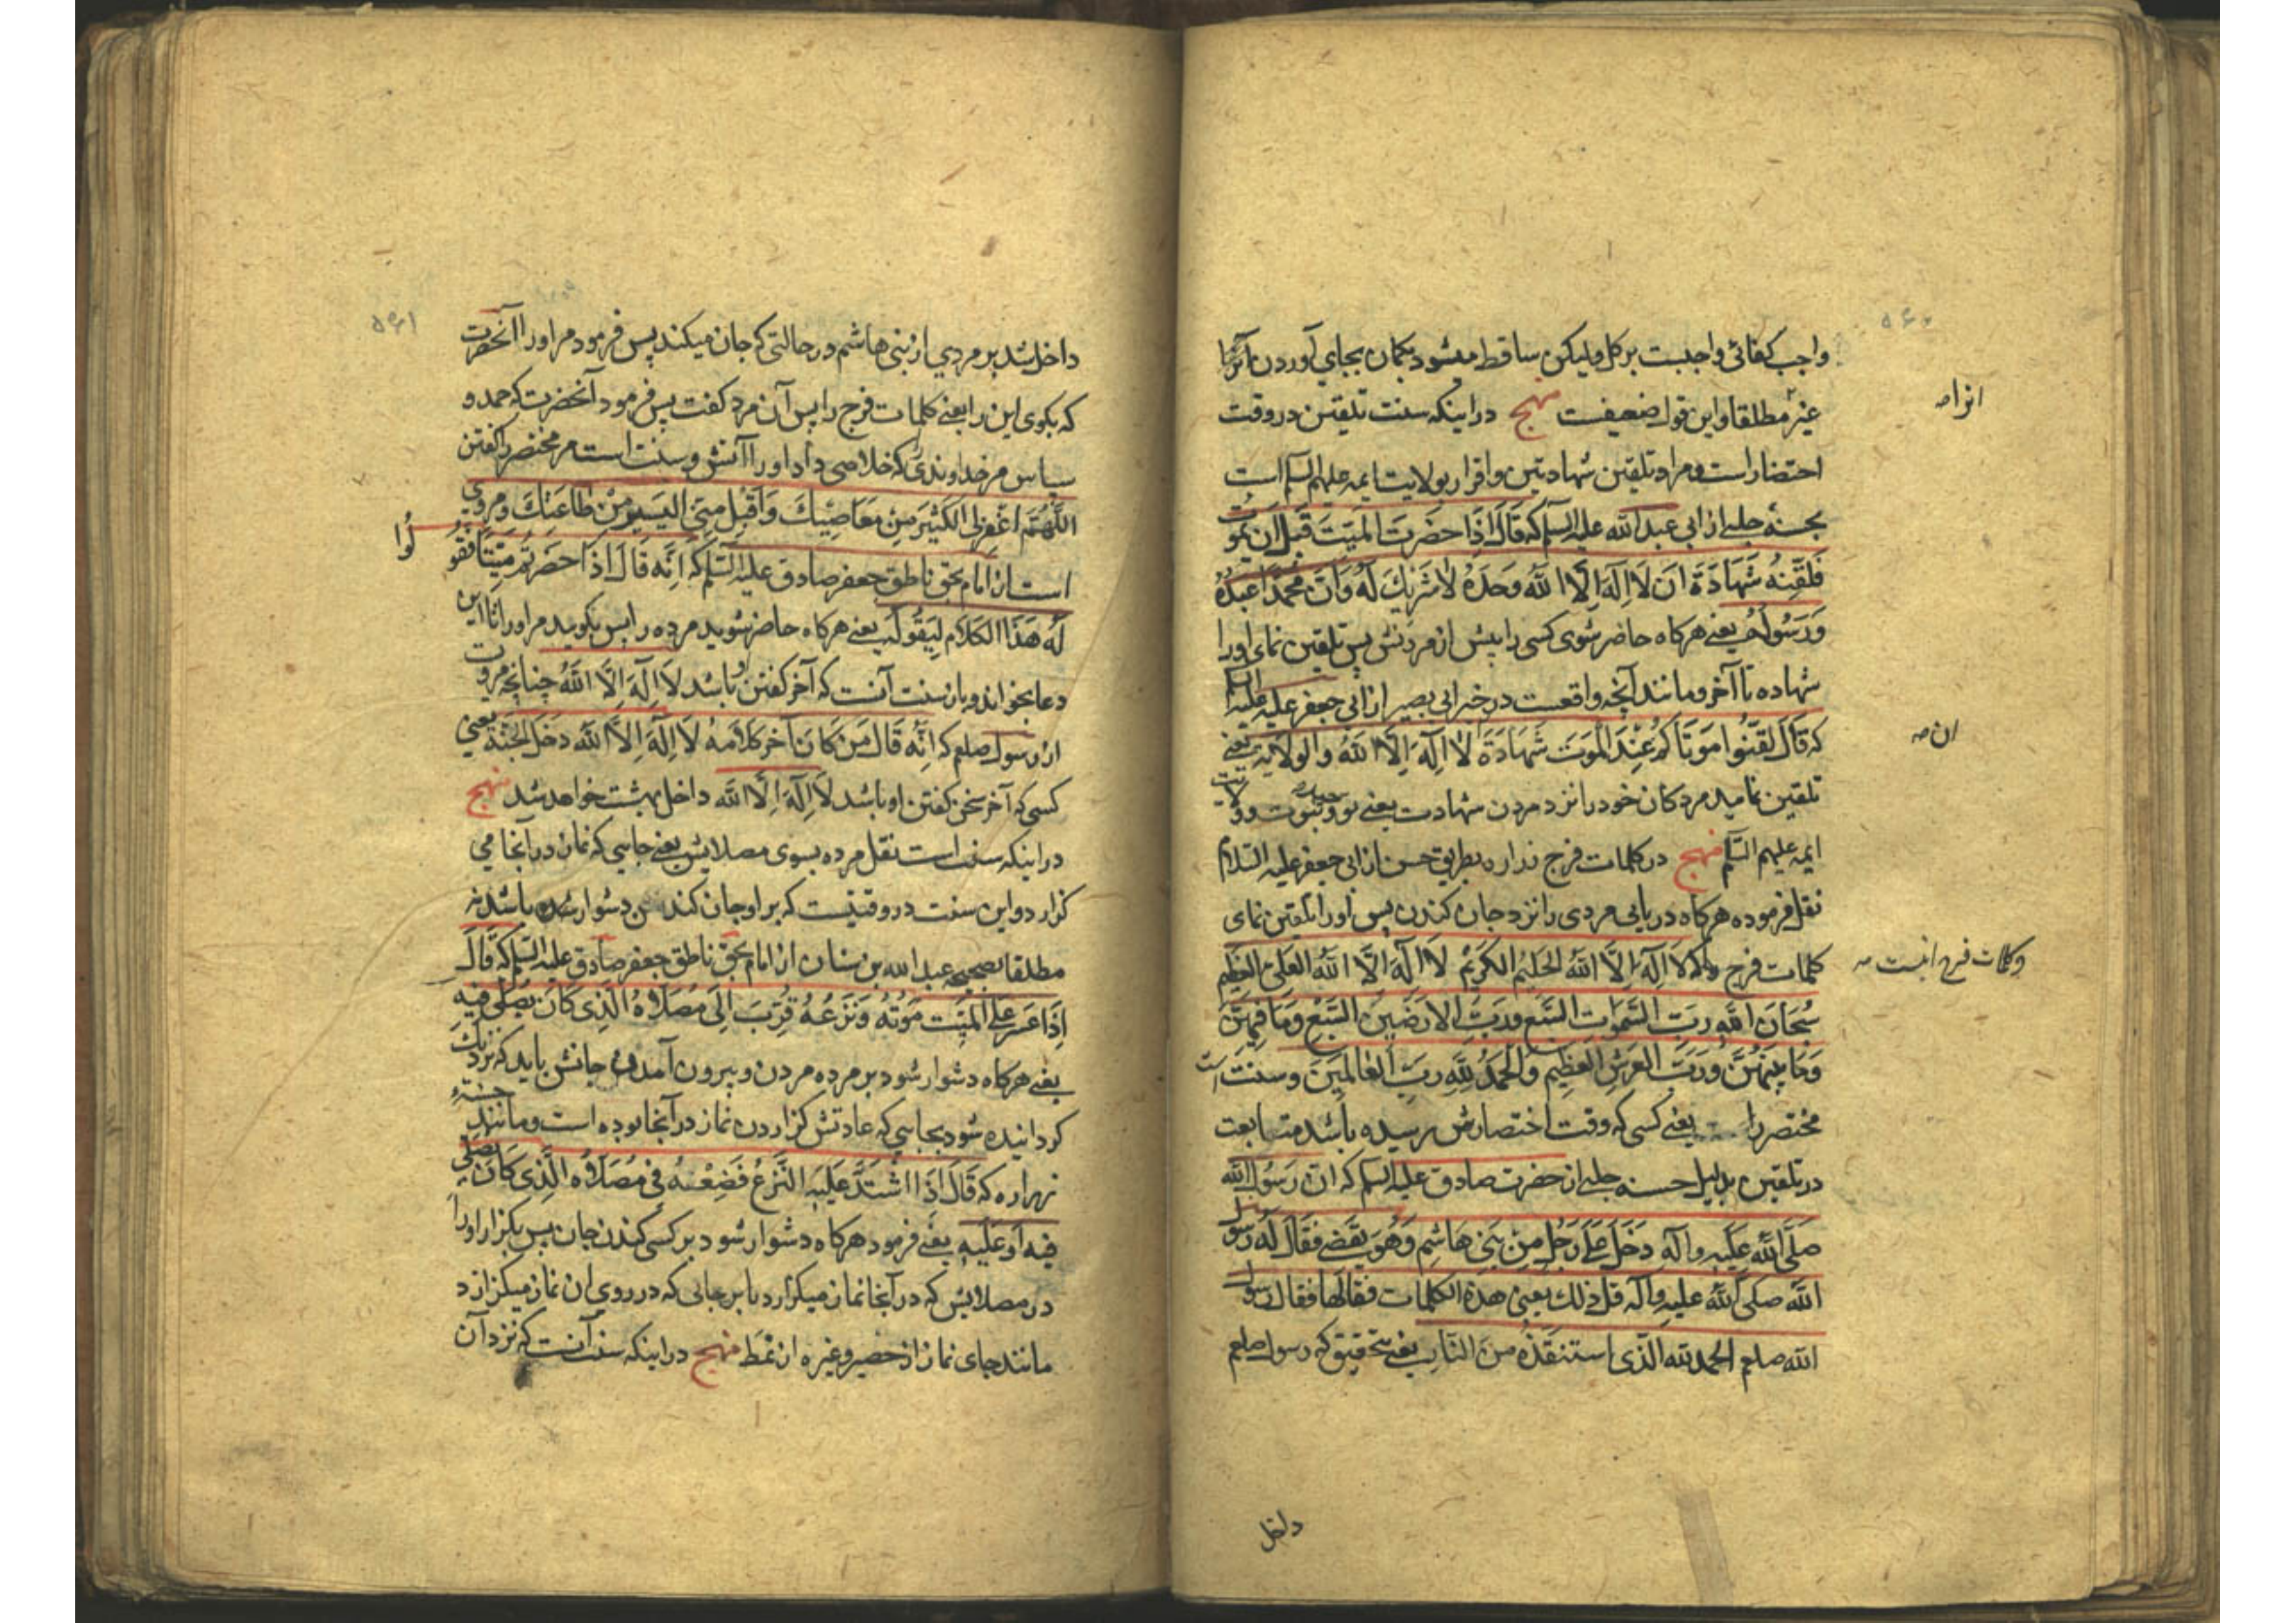 واجب کفائی واجبست بر کل ولیکن ساقط میشود بکمان بجای آوردن
غیر مطلقا و این قول ضعیفست منهج در اینکه سنت تلقین در وقت
احتضار است و مراد تلقین شهادتین و اقرار بولایت ایمه علیهم السلم است
بحسنهٔ حلبی از ابی عبد الله علیه السلم که قَالَ اِذَا حَضَرتَ المَیِّتَ قَبلَ ان یَموُت
فَلَقِّنهُ شَهَادَةَ اَن لَا اِلَهَ اِلَّا اللهُ وَحدَهُ لَا شَرِیكَ لَهُ وَاَنَّ مُحَمَّدًا عَبدُهُ
وَرَسُولُهُ یعنے هرکاه حاضر شوی کسی را پیش از مردنش پس تلقین نمای اورا
شهاده تا آخر و مانند آنچه واقعست در خبر ابی بصیر از ابی جعفر علیه علیه السلم
که قَالَ لَقِّنُوا مَوتَاکُم عِندَ المَوتَ شَهَادَةَ لَا اِلَهَ اِلَّا اللهُ وَالولایه یعنے
تلقین نمایید مردکان خود را نزد مردن شهادت یعنے توحید و نبوت و ولایت
ایمه علیهم السلم منهج در کلمات فرج زراره بطریق حسن از ابی جعفر علیه السلام
نقل فرموده هرکاه دریابی مردی را نزد جان کندن پس اورا تلقین نمای
کلمات فرج لَا اِلَهَ اِلَّا اللهُ الحَلِیمُ الکَرِیمُ لَا اِلَهَ اِلَّا اللهُ العَلِیُّ العَظِیمُ
سُبحَانَ اللهِ رَبِّ السَّمَواتِ السَّبعِ وَرَبِّ الاَرَضِینَ السَّبعِ وَمَا فِیهِنَّ
وَمَا بَینَهُنَّ وَرَبِّ العَرشِ العَظِیمِ وَالحَمدُ لِلَّهِ رَبِّ العَالَمِینَ و سنت است
محتضر را یعنے کسی که وقت احتضارش رسیده باشد متابعت
در تلقین بدلیل حسنه حلبی از حضرت صادق علیه السلم که انّ رَسُولَ الله
صَلَّی اللهُ عَلَیهِ وآله دَخَلَ عَلَی رَجُلٍ مِن بَنِی هَاشِمٍ وَهُوَ یَقضِی فَقَالَ لَهُ رَسُول
الله صَلَّی اللهُ علیه وآله قل ذلك یعنی هذه الکلمات فقالها فقال رسول
الله صلعم الحمد لله الّذی استنقَذَهُ مِنَ النّار یعنے بتحقیق که رسول صلعم
ان صه
وکلمات فرج اینست صه
داخل
داخل شد بر مردی از بنی هاشم در حالتی که جان میکند پس فرمود مر اورا آنحضرت
که بکوی این را یعنے کلمات فرج را پس آن مرد کفت پس فرمود آنحضرت که حمد و
سپاس مر خداوندی که خلاصی داد اورا آتش و سنت است مر محتضر را کفتن
اللَّهُمَّ اغفِر لِیَ الکَثِیرَ مِن مَعَاصِیكَ وَاقبَل مِنِّی الیَسِیرَ مِن طَاعَتِكَ و مروی
است از امام بحق ناطق جعفر صادق علیه السّلم که اِنَّه قَالَ اِذَا حَضَرتُم مَیِّتًا فَقُولُوا
لَهُ هَذَا الکَلَامَ لِیَقُولَهُ یعنے هرکاه حاضر شوید مرده را پس بکوید مر اورا تا این
دعا بخواند و باز سنت آنست که آخر کفتن او باشد لَا اِلَهَ اِلَّا اللهُ چنانچه مروت
از رسول صلعم که اِنَّه قَالَ مَن کَانَ آخر کَلَامهُ لَا اِلَهَ اِلَّا اللهُ دَخَلَ الجَنَّةَ یعنی
کسی که آخر سخن کفتن او باشد لَا اِلَهَ اِلَّا اللهُ داخل بهشت خواهد شد منهج
در اینکه سنت است نقل مرده بسوی مصلایش یعنے جایی که نماز در آنجا می
کزارد و این سنت در وقتیست که بر او جان کندن دشوار شده باشد نه
مطلقا بصحیحه عبد الله بن سنان از امام بحق ناطق جعفر صادق علیه السّلم که قَالَ
اِذَا عَسُرَ عَلَی المَیِّتِ مَوتُهُ وَنَزعُهُ قُرِّبَ اِلَی مُصَلَّاهُ الَّذِی کَانَ یُصَلِّی فِیهِ
یعنے هرکاه دشوار شود بر مرده مردن و بیرون آمدن جانش باید که نزدیك
کردانیده شود بجایی که عادتش کزاردن نماز در آنجا بوده است و مانند حسنهٔ
زراره که قَالَ اِذَا اشتَدَّ عَلَیهِ النَّزعُ فَضَعهُ فِی مُصَلَّاهُ الَّذِی کَانَ یُصَلِّی
فِیهِ اَو عَلَیهِ یعنے فرمود هرکاه دشوار شود بر کسی کندن جان پس بکزار اورا
در مصلایش که در آنجا نماز میکزارد یا بر جائی که در روی ان نماز میکزارد
مانند جای نماز از حصیر و غیره ان نَمَط منهج در اینکه سنت آنست که نزد آن